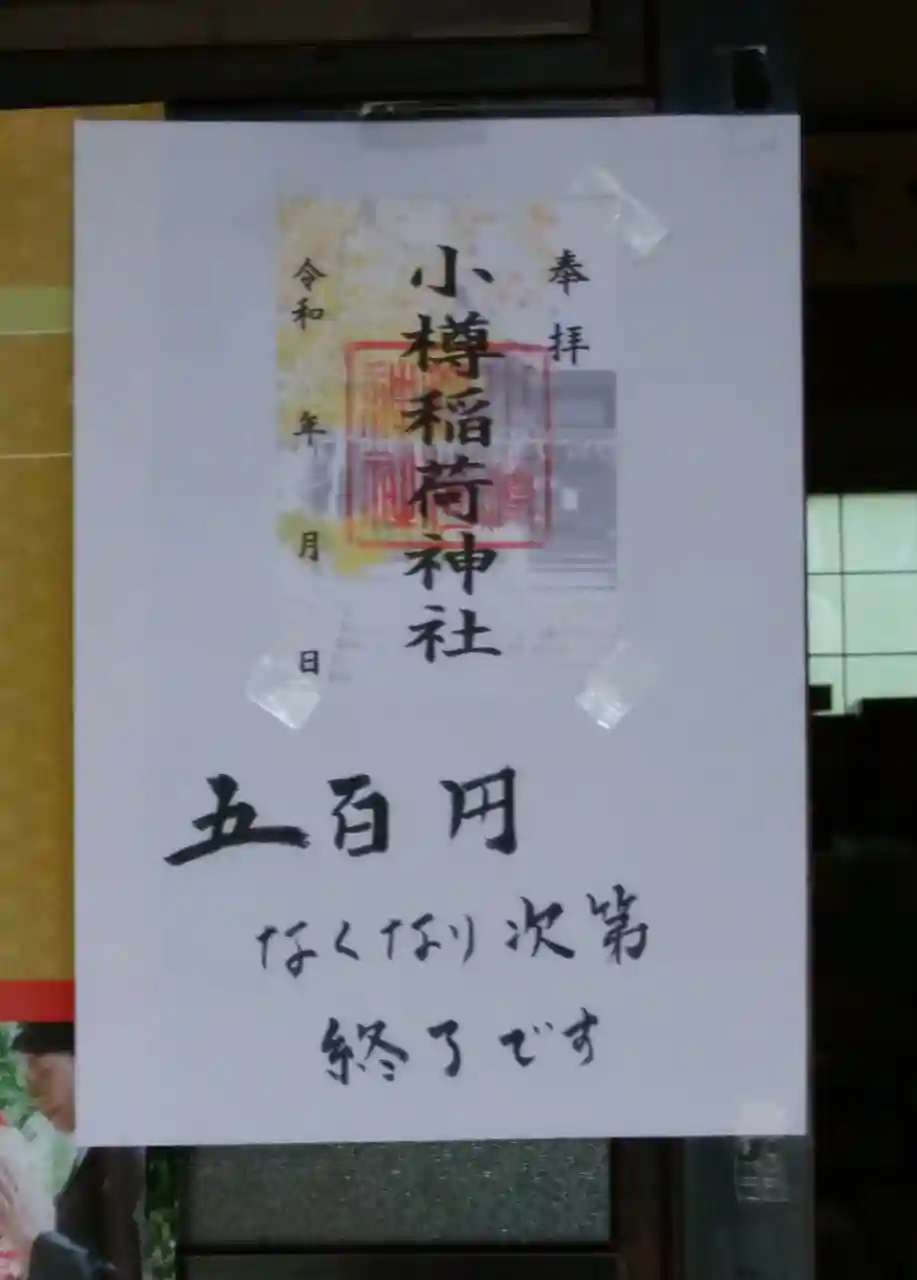 奉拝
小樽稲荷神社
令和 年 月 日
五百円
なくなり次第
終了です